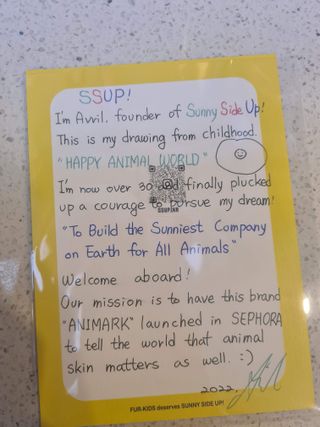 SSUP!
I'm Avril, founder of Sunny Side Up!
This is my drawing from childhood.
"HAPPY ANIMAL WORLD"
I'm now over 30 and finally plucked
up a courage to pursue my dream!
"To Build the Sunniest Company
on Earth for All Animals"
Welcome aboard!
Our mission is to have this brand
"ANIMARK" launched in SEPHORA
to tell the world that animal
skin matters as well. :)
2022.
FUR-KIDS deserves SUNNY SIDE UP!